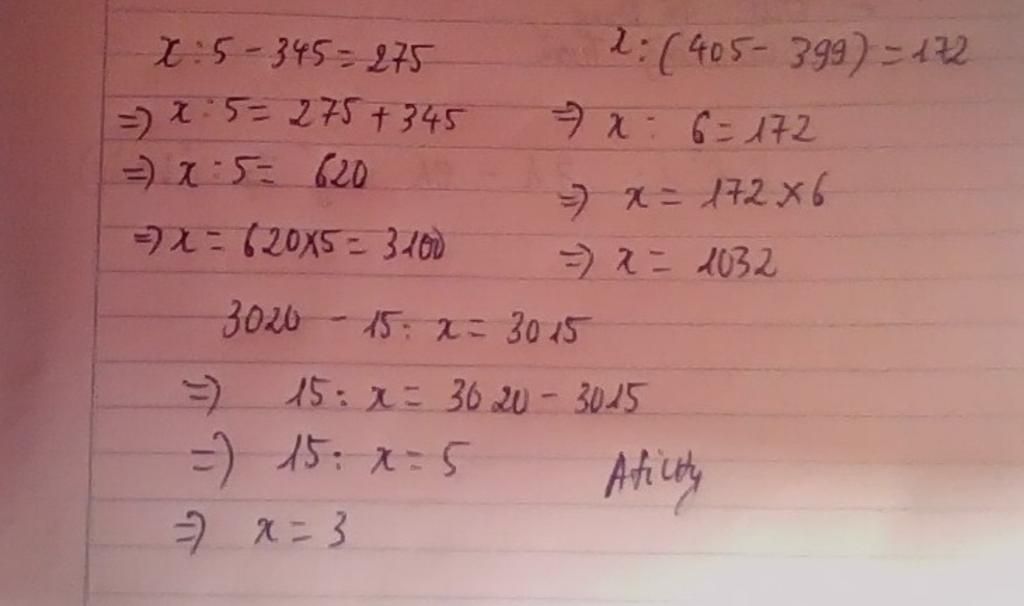 x : 5 - 345 = 275
=> x : 5 = 275 + 345
=> x : 5 = 620
=> x = 620 x 5 = 3100
x : (405 - 399) = 172
=> x : 6 = 172
=> x = 172 x 6
=> x = 1032
3020 - 15 : x = 3015
=> 15 : x = 3020 - 3015
=> 15 : x = 5
=> x = 3